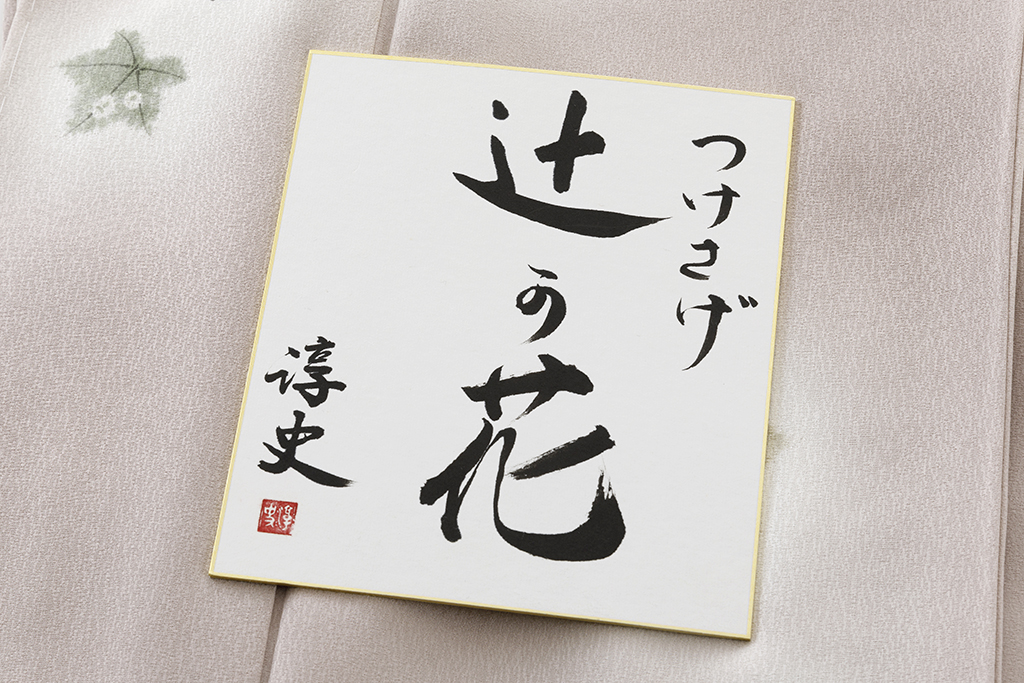 つけさげ
辻の花
淳史
淳史